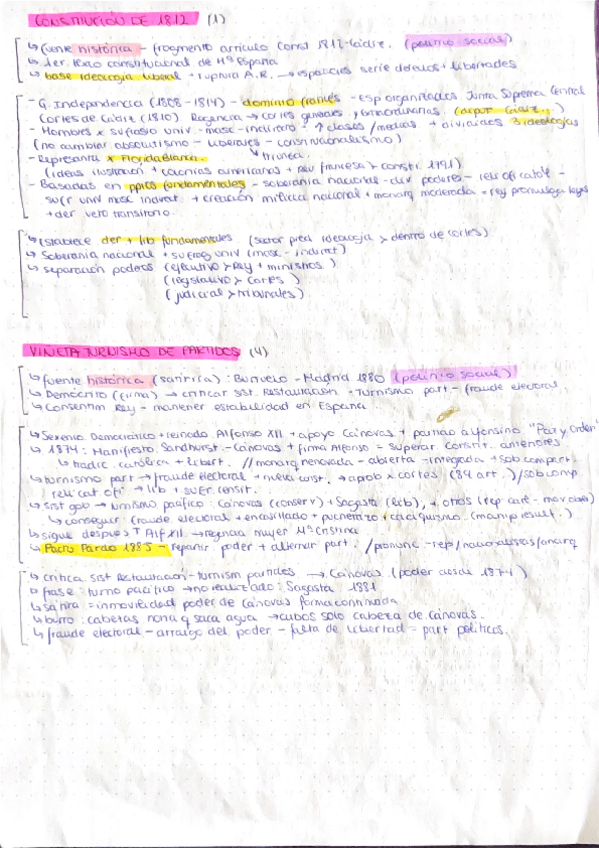 CONSTITUCIÓN DE 1812 (1)
↳ fuente histórica - fragmento artículo Const 1812-Cádiz. (político social)
↳ 1er. texto constitucional de Hª España
↳ base ideología liberal + ruptura A.R. → españoles serie derechos + libertades
- G. Independencia (1808-1814) - dominio francés - Esp organizados Junta Suprema Central
Cortes de Cádiz (1810) Regencia → cortes generales y extraordinarias. (diput Cádiz)
- Hombres x sufragio univ - masc-indirecto - ↑ clases/medias + divididos 3 ideologías
(no cambiar absolutismo - liberales - constitucionalismo)
- Representa x Floridablanca.
(ideas ilustración + colonias americanas + rev francesa > constit. 1791)
- Basadas en ppios fundamentales - soberanía nacional - div poderes - relig oficial catól -
sufr univ masc indirect. + creación milicia nacional + monarq moderada = rey promulga leyes
+ der veto transitorio.
↳ Establece der + lib fundamentales (ideología > dentro de cortes)
↳ Soberanía nacional + sufrag univ (masc-indirect)
↳ separación poderes (ejecutivo > Rey + ministros)
(legislativo > cortes)
(judicial > tribunales)
VIÑETA TURNISMO DE PARTIDOS (4)
↳ fuente histórica (satírica): Buñuelo - Madrid 1880 (político social)
↳ Demócrito (firma) → criticar sist. Restauración - Turnismo part - (fraude electoral,
↳ Consentim Rey - mantener estabilidad en España
↳ Sexenio Democrático + reinado Alfonso XII + apoyo Cánovas + partido alfonsino "Paz y Orden"
↳ 1874: Manifiesto Sandhurst - Cánovas + firma Alfonso = superar constit. anteriores.
↳ tradic. católica + libert. // monarq renovada - abierta - integrada + sob compart.
↳ turnismo part → fraude electoral + nueva const. → aprob x cortes (89 art.) / sob comp.
relig cat. ofi → lib + sufr. censit.
↳ sist gob → turnismo pacífico: Cánovas (conserv) + Sagasta (lib), + otros (rep carl - mov obrero)
↳ conseguir (fraude electoral + encasillado + pucherazo + caciquismo. (manip result.)
↳ sigue después † Alf XII → regencia mujer Mª Cristina
↳ Pacto Pardo 1885 - repartir poder + alternar part. / pronunc - rep / nacionalistas / anarq
↳ crítica sist Restauración - turnism partidos → Cánovas (poder desde 1874)
↳ frase: turno pacífico → no realizado: Sagasta 1881
↳ sátira = inmovilidad poder de Cánovas forma continuada
↳ burro: cabezas noria q saca agua → cubos solo cabeza de Cánovas.
↳ fraude electoral - arraigo del poder - falta de libertad = part políticos.